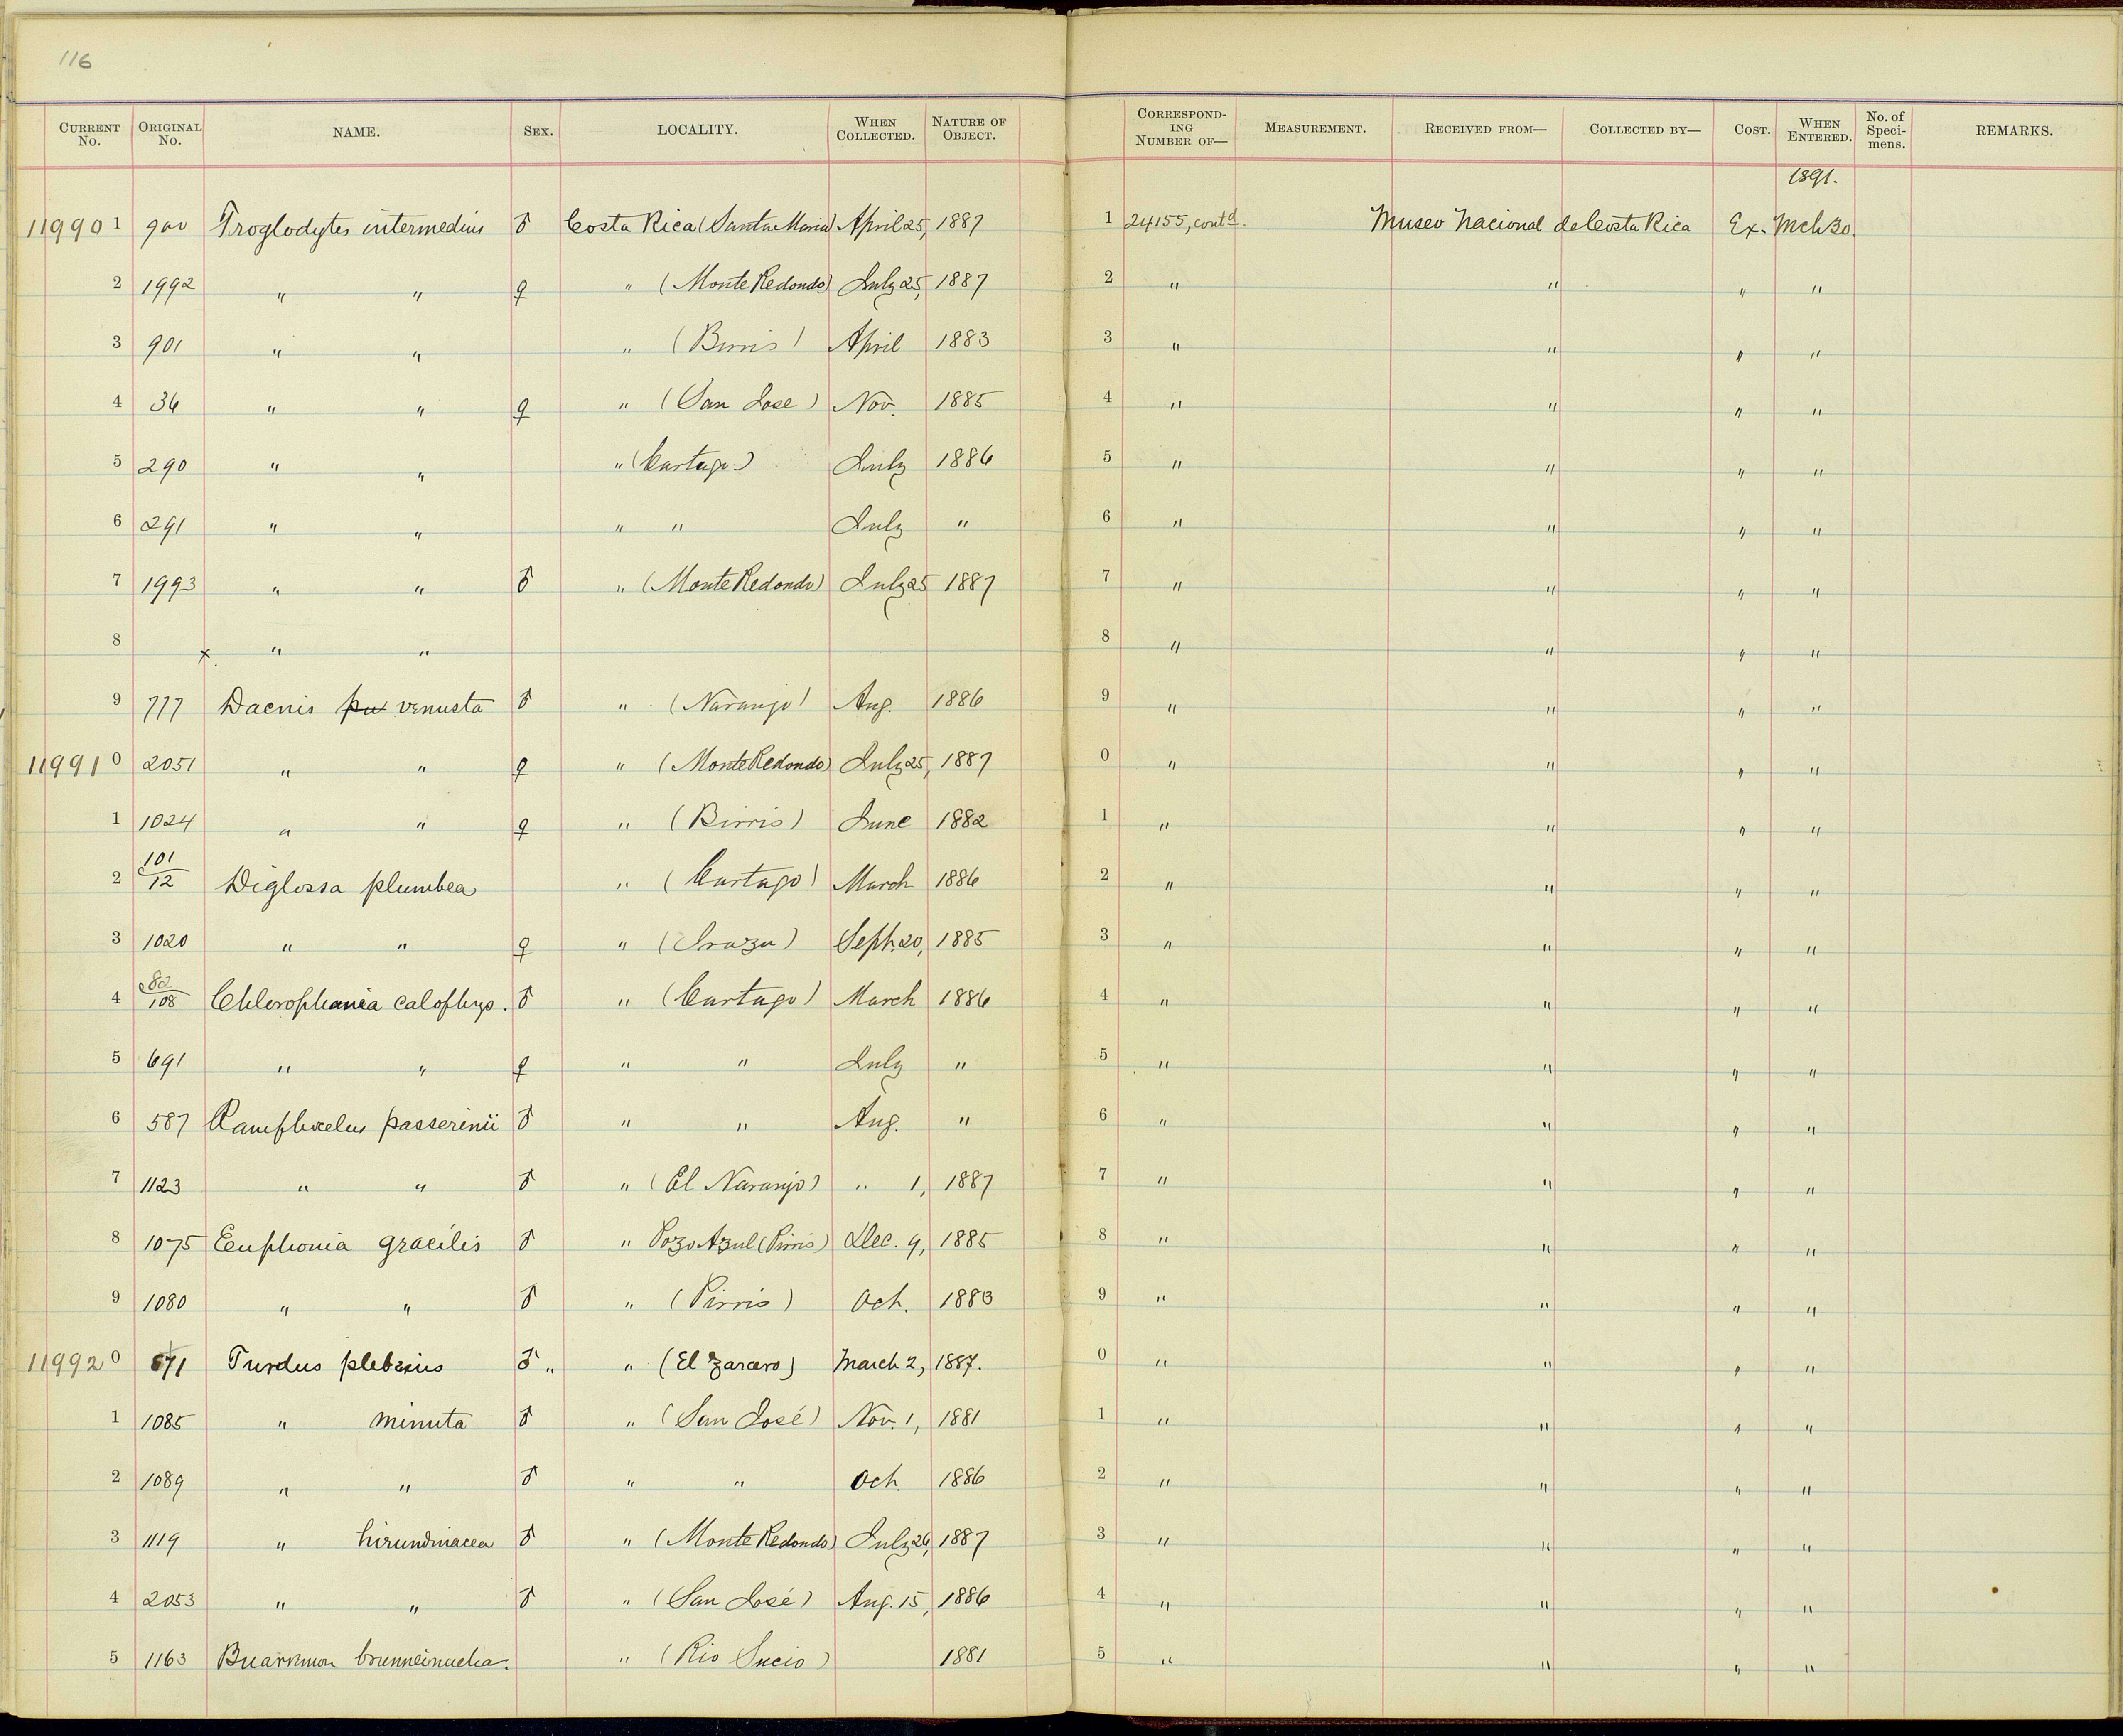 116
CURRENT No. ORIGINAL No. NAME. SEX. LOCALITY. WHEN COLLECTED. NATURE OF OBJECT. CORRESPONDING NUMBER OF— MEASUREMENT. RECEIVED FROM— COLLECTED BY— COST. WHEN ENTERED. No. of Specimens. REMARKS.
1891.
11990 1 900 Troglodytes intermedius ♂ Costa Rica (Santa Maria) April 25, 1887 1 24155, contd. Museo Nacional de Costa Rica Ex. Mch 30.
2 1992 " " ♀ " (Monte Redondo) July 25, 1887 2 " " " "
3 901 " " " (Birris) April 1883 3 " " " "
4 36 " " ♀ " (San Jose) Nov. 1885 4 " " " "
5 290 " " " (Cartago) July 1886 5 " " " "
6 291 " " " " July " 6 " " " "
7 1993 " " ♂ " (Monte Redondo) July 25 1887 7 " " " "
8 x " " 8 " " " "
9 777 Dacnis pu venusta ♂ " (Naranjo) Aug. 1886 9 " " " "
11991 0 2051 " " ♀ " (Monte Redondo) July 25, 1887 0 " " " "
1 1024 " " ♀ " (Birris) June 1882 1 " " " "
2 101/12 Diglossa plumbea " (Cartago) March 1886 2 " " " "
3 1020 " " ♀ " (Irazu) Sept. 20, 1885 3 " " " "
4 82/108 Chlorophania calophrys. ♂ " (Cartago) March 1886 4 " " " "
5 691 " " ♀ " " July " 5 " " " "
6 587 Ramphocelus passerinii ♂ " " Aug. " 6 " " " "
7 1123 " " ♂ " (El Naranjo) " 1, 1887 7 " " " "
8 1075 Euphonia gracilis ♂ " Pozo Azul (Pirris) Dec. 9, 1885 8 " " " "
9 1080 " " ♂ " (Pirris) Oct. 1883 9 " " " "
11992 0 671 Turdus plebeius ♂ " " (El Zarcero) March 2, 1887. 0 " " " "
1 1085 " minuta ♂ " (San José) Nov. 1, 1881 1 " " " "
2 1089 " " ♂ " " Oct. 1886 2 " " " "
3 1119 " hirundinacea ♂ " (Monte Redondo) July 26, 1887 3 " " " "
4 2053 " " ♂ " (San José) Aug. 15, 1886 4 " " " "
5 1163 Buarremon brunneinucha. " (Rio Sucio) 1881 5 " " " "